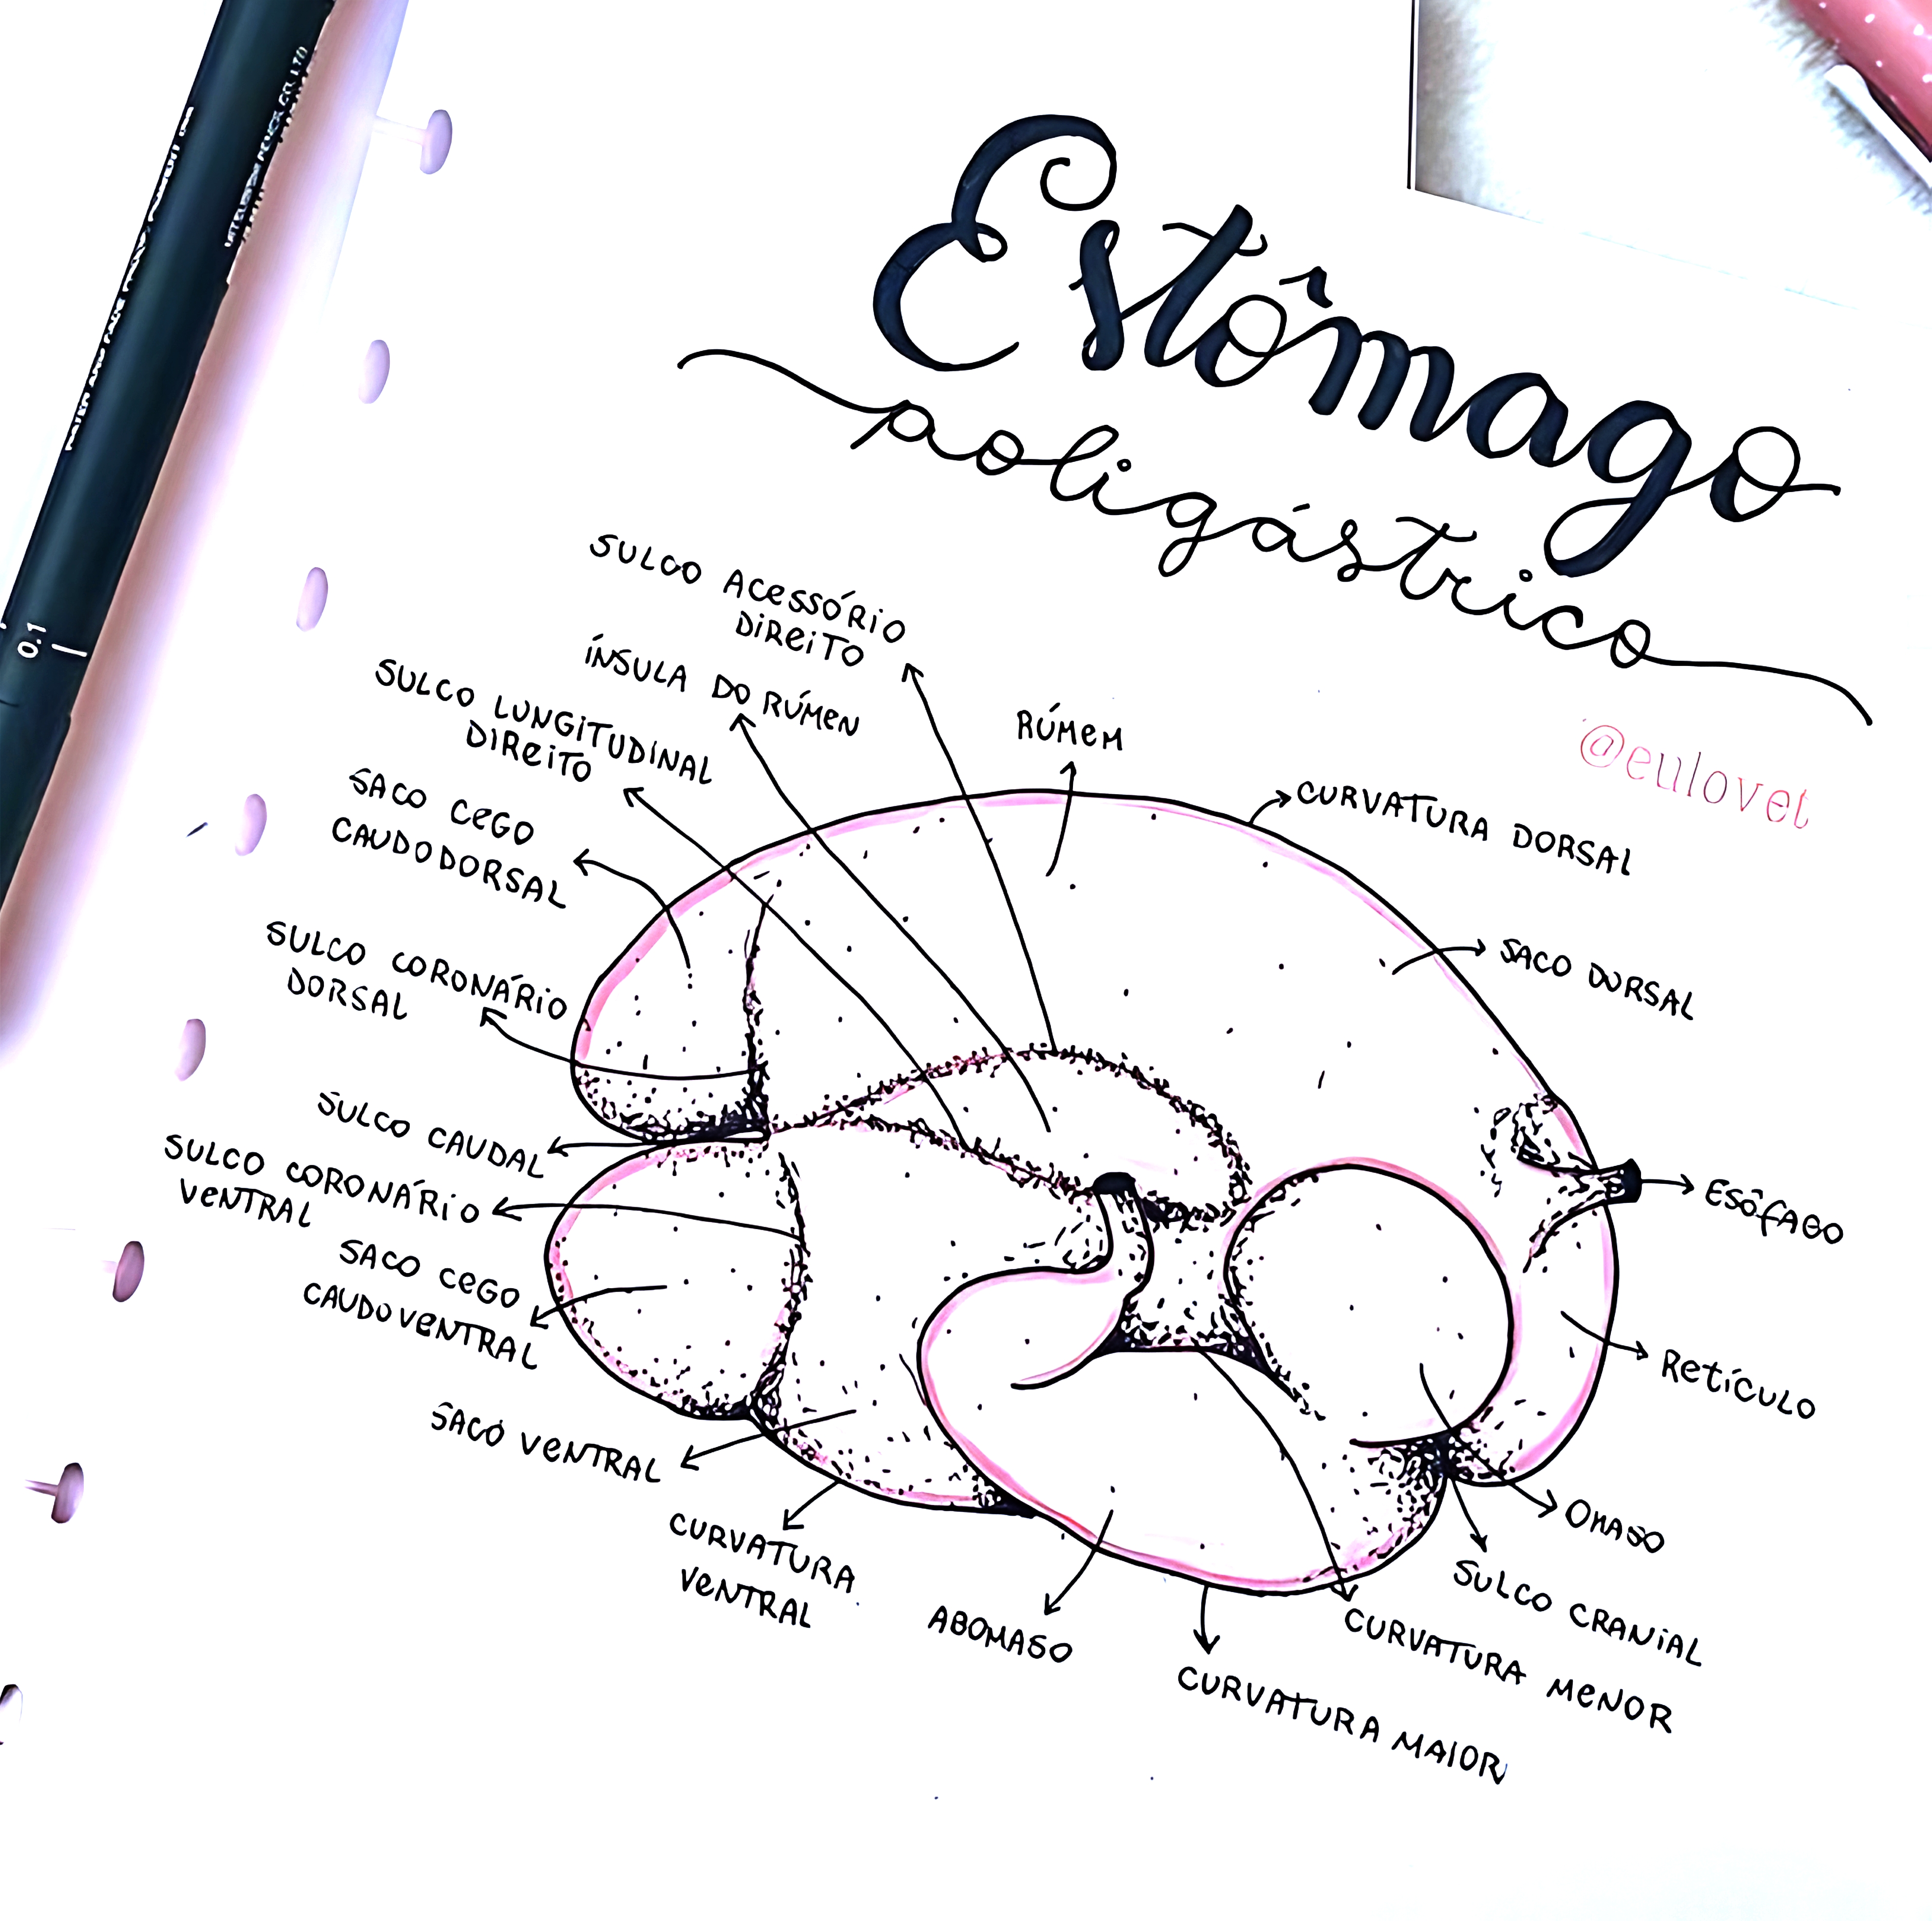 Estômago
poligástrico
@eulovet
SULCO ACESSÓRIO
DIREITO
ÍNSULA DO RÚMEN
SULCO LUNGITUDINAL
DIREITO
SACO CEGO
CAUDODORSAL
SULCO CORONÁRIO
DORSAL
SULCO CAUDAL
SULCO CORONÁRIO
VENTRAL
SACO CEGO
CAUDOVENTRAL
SACO VENTRAL
CURVATURA
VENTRAL
ABOMASO
CURVATURA MAIOR
CURVATURA MENOR
SULCO CRANIAL
OMASO
RETÍCULO
ESÔFAGO
SACO DORSAL
CURVATURA DORSAL
RÚMEM
0.1